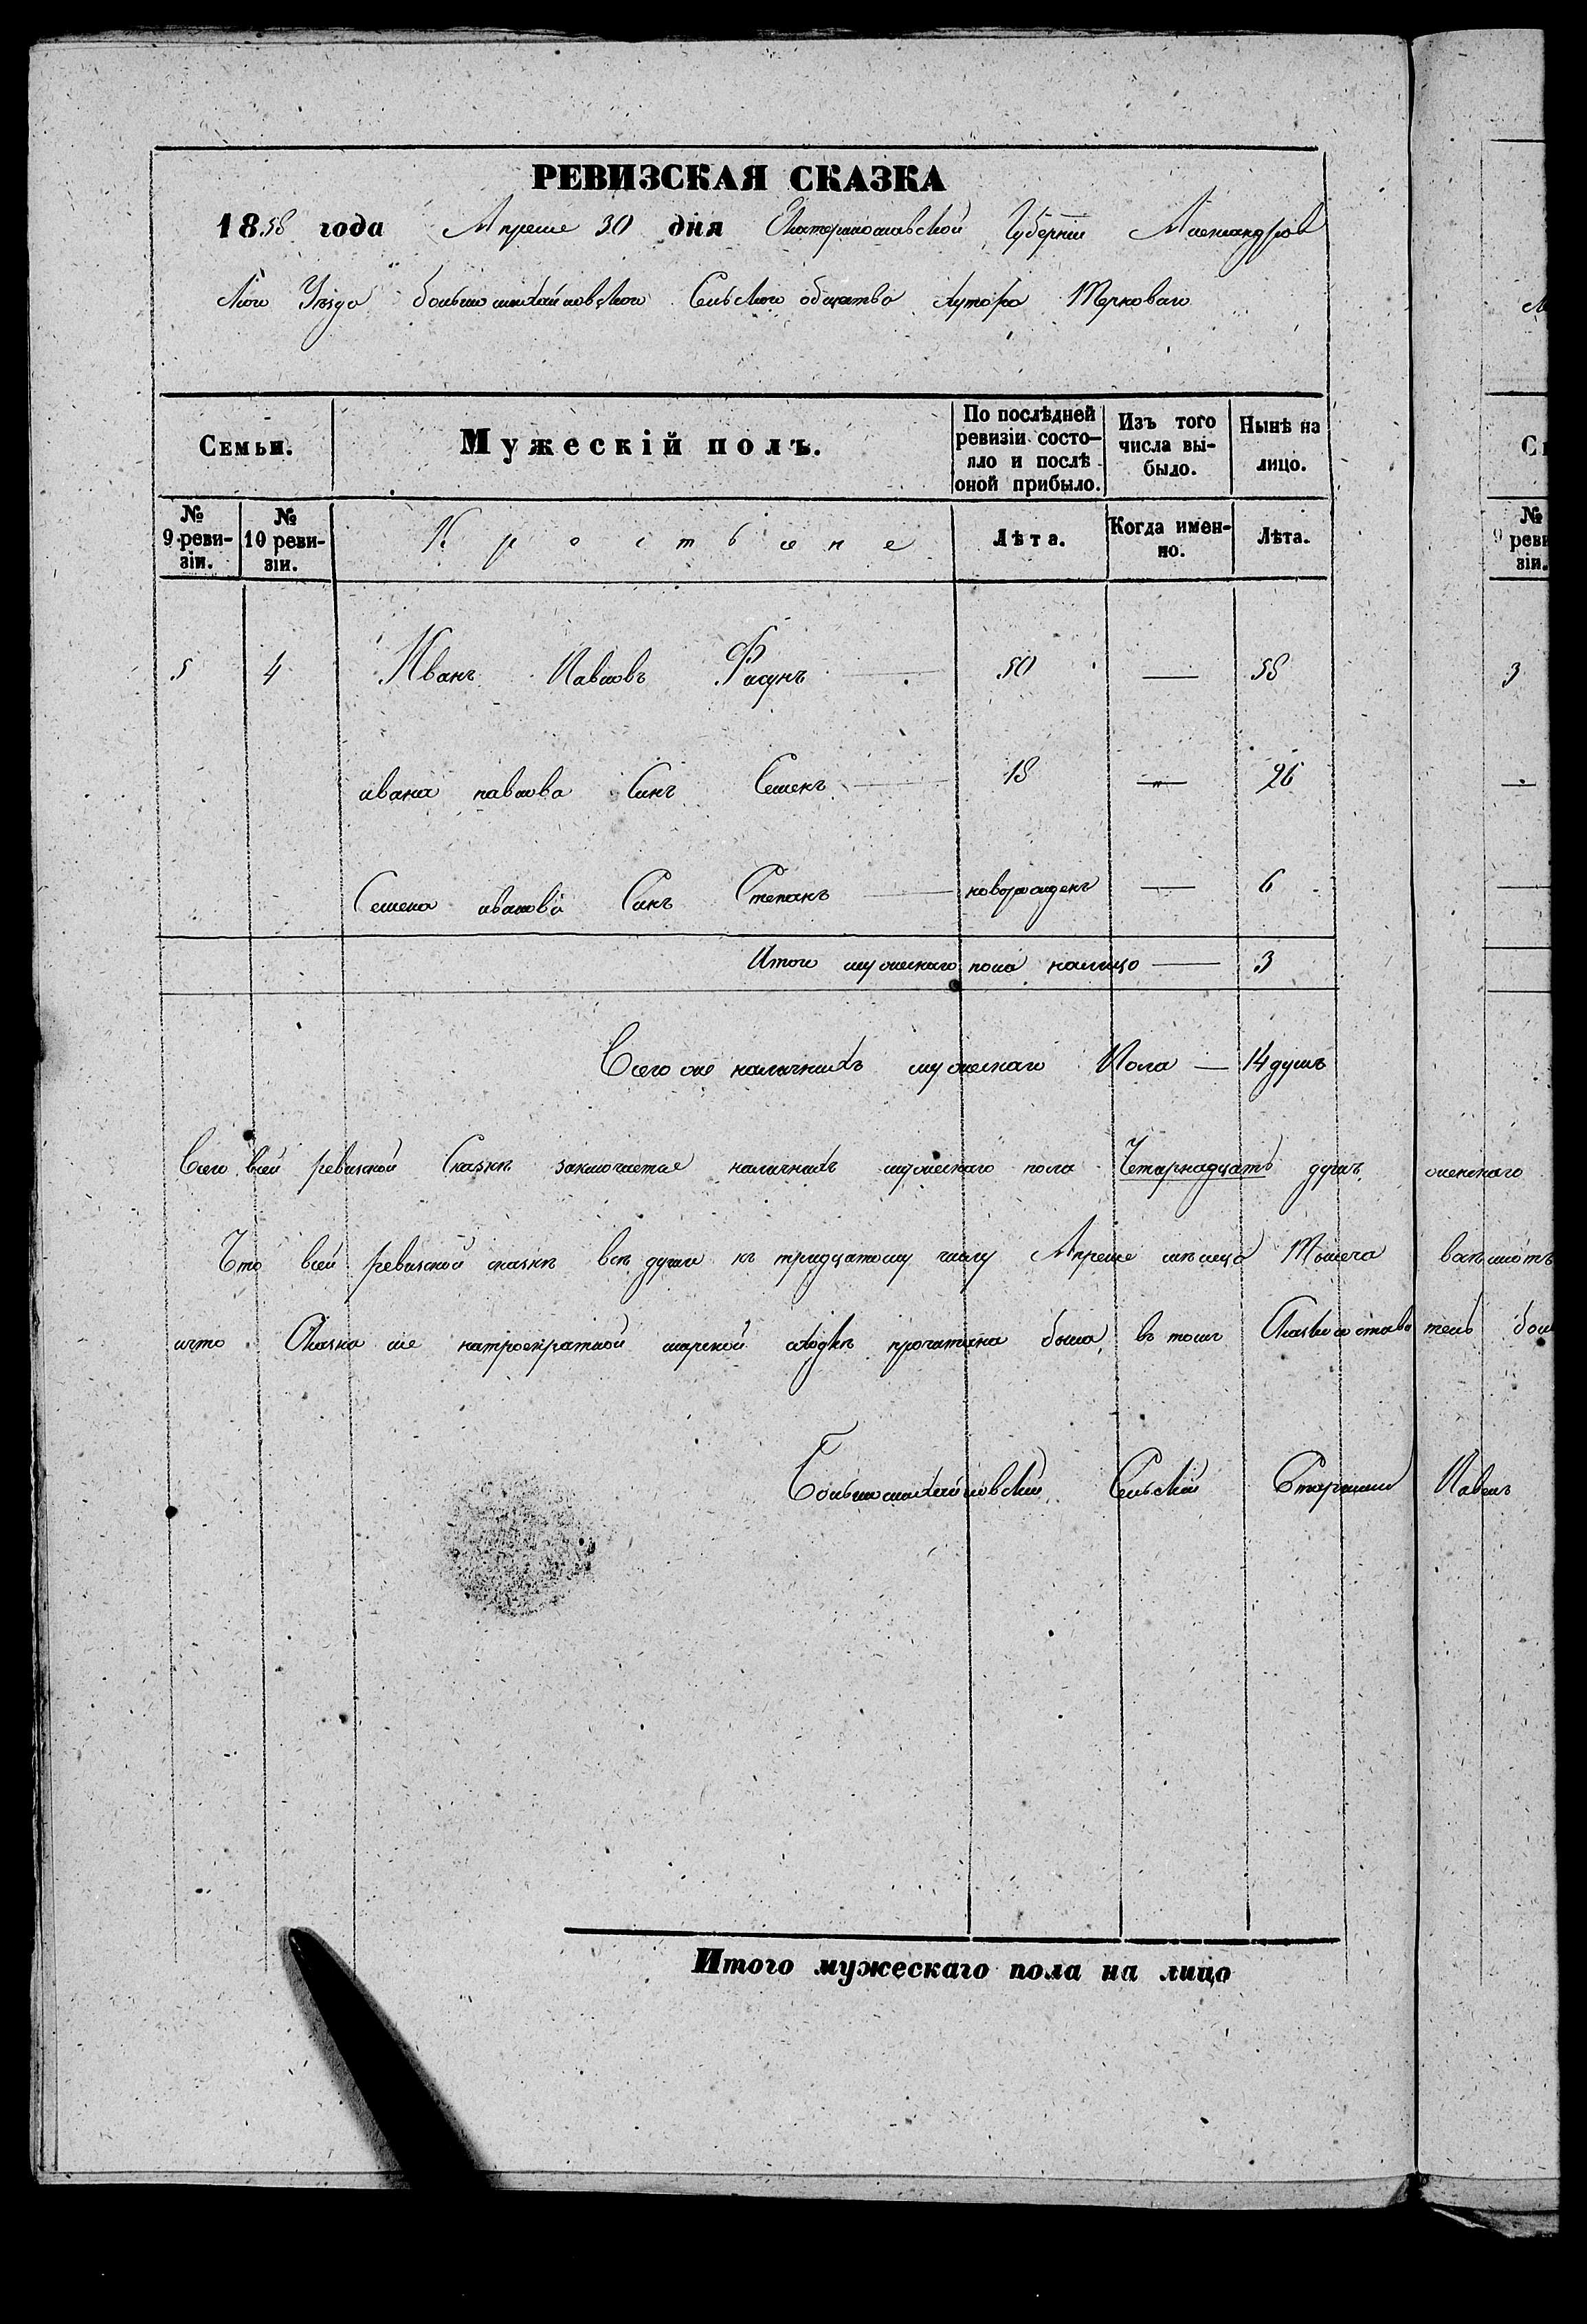 РЕВИЗСКАЯ СКАЗКА
1858 года Апреля 30 дня Екатеринославской Губернiи Александров
ского Уѣзда большемихайловского Сельского общества хутора Терноваго
Семьи. Мужескій полъ. По послѣдней ревизіи состояло и послѣ оной прибыло. Изъ того числа выбыло. Нынѣ на лицо.
№ 9 ревизіи. № 10 ревизіи. Крестьяне Лѣта. Когда именно. Лѣта.
5 4 Иванъ Павловъ Фасунъ — 50 — 58
ивана павлова Синъ Семенъ — 18 — 26
Семена иванова Синъ Степанъ — новорожденъ — 6
Итого мужескаго пола налицо — 3
Всего же наличнихъ мужескаго Пола — 14 душъ
Всего всей ревизской Сказкѣ заключается наличнихъ мужескаго пола Четырнадцать душъ, женскаго
Что всей ревизской сказкѣ всѣ души къ тридцатому числу Апреля мѣсяца
что Сказка сія натроекратной мирской сходкѣ прочитана была, в томъ
Большемихайловскій Сельскій Старшина Павелъ
Итого мужескаго пола на лицо
№ 9 реви
зіи.
3